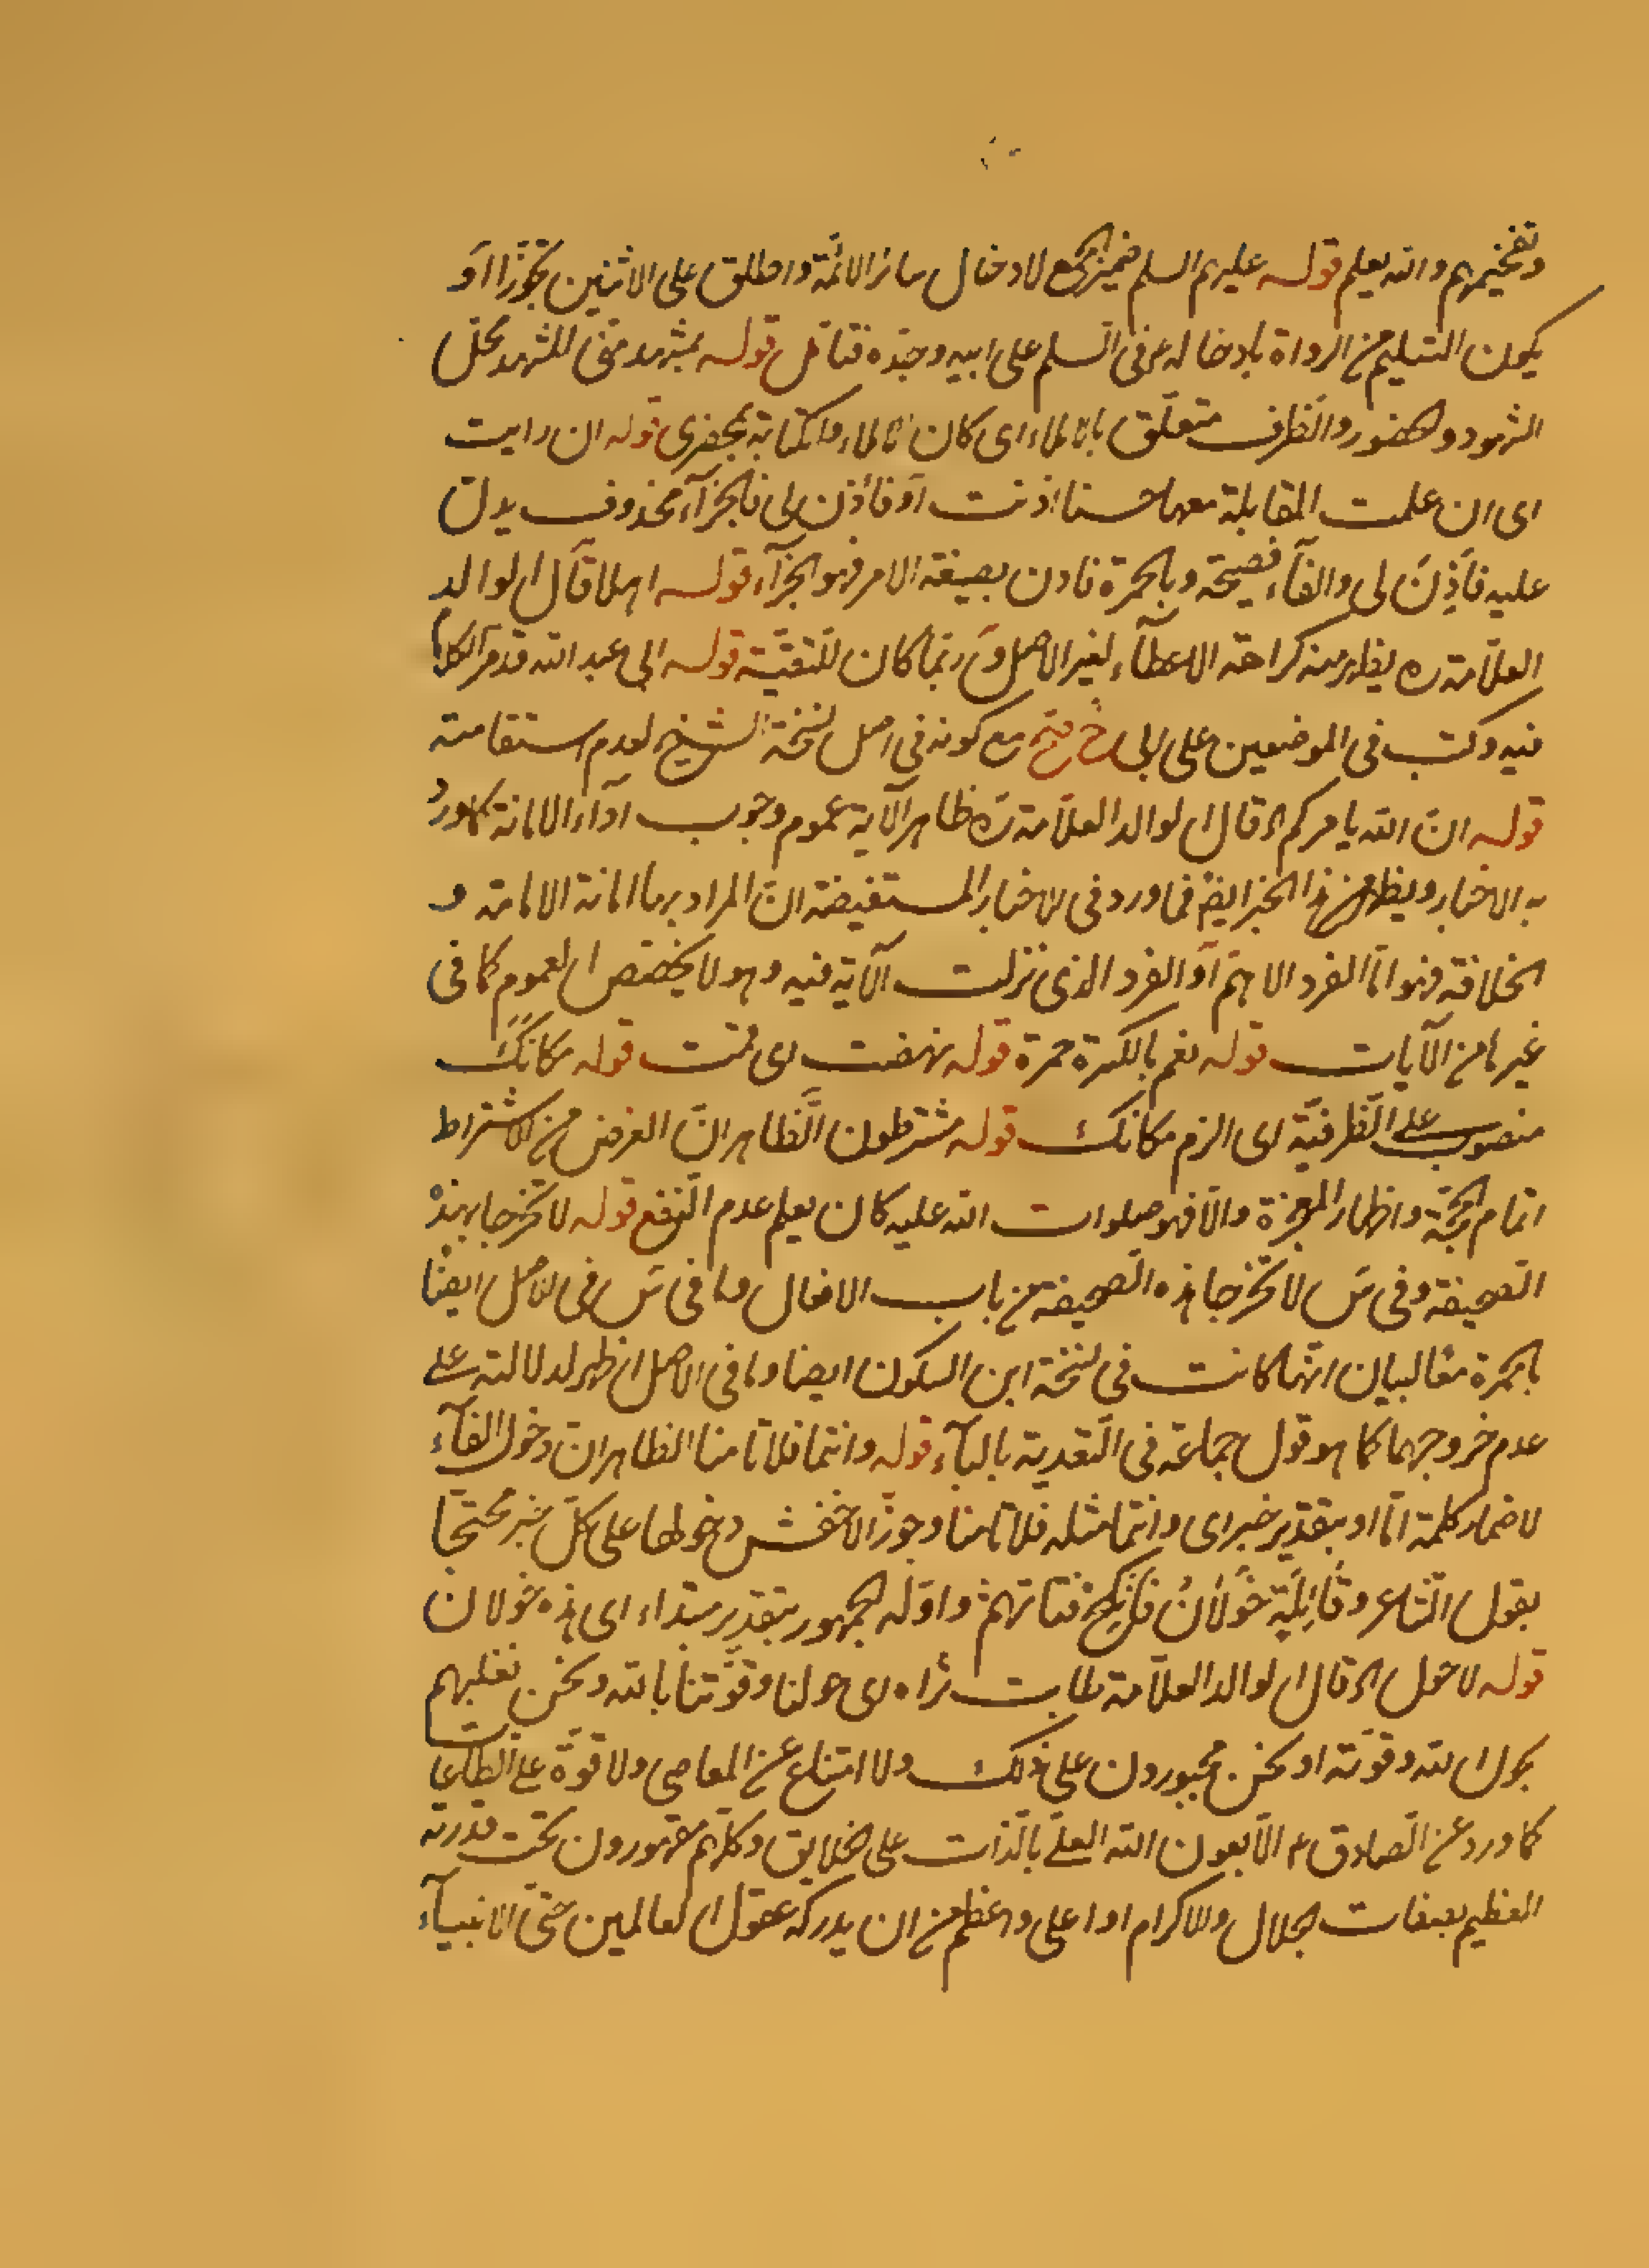 وتفخيمهم والله يعلم قوله عليهم السلم ضمير الجمع لادخال سائر الائمة واطلق على الاثنين تجوّزا او
يكون التسليم من الرواة بادخاله ع في السلم على ابيه وجده فتامل قوله بمشهد متى المشهد محل
الشهود والحضور والظرف متعلق بالاملاء اى كان الاملاء والكتابة بمحضرى قوله ان رايت
اى ان علمت المقابلة معها حسنا اذنت او فأذن لى فالجزآء محذوف يدل
عليه فأذن لى والفآء فصيحة وبالحمرة فاذن بصيغة الامر فهو الجزآء قوله اهلا قال الوالد
العلّامة ره يظهر منه كراهة الاعطآء لغير الاهل و ربّما كان للتقيّة قوله ابى عبد الله قد مر الكلام
فيه وكتب فى الموضعين على ابى مع كونه فى اصل نسخة الشيخ لعدم استقامته
قوله ان الله يامركم اه قال الوالد العلّامة ره ظاهر الآية عموم وجوب ادآء الامانة كما ورد
به الاخبار ويظهر من هذا الخبر ايضا فما ورد فى الاخبار المستفيضة ان المراد بها امانة الامامة و
الخلافة فهو امّا الفرد الاهمّ او الفرد الذى نزلت الآية فيه وهو لا يخصّص العموم كما فى
غيرها من الآيات قوله نعم بالكسرة حمرة قوله نهضت اى قمت قوله مكانك
منصوب على الظرفيّة اى الزم مكانك قوله مشترطون الظاهر ان الغرض من الاشتراط
اتمام الحجّة واظهار المعجزة والّا فهو صلوات الله عليه كان يعلم عدم النفع قوله لا تخرجا بهذه
الصحيفة وفى س لا تخرجا هذه الصحيفة من باب الافعال وما فى س فى الاصل ايضا
بالحمرة مع البيان انّها كانت فى نسخة ابن السكون ايضا وما فى الاصل اظهر لدلالته على
عدم خروجهما كما هو قول جماعة فى التعدية بالبآء قوله وانتما فلا تامنا الظاهر ان دخول الفآء
لاضمار كلمة امّا او بتقدير خبر اى وانتما مثله فلا تامنا وجوّز الاخفش دخولها على كل خبر محتجّا
بقول الشاعر وقائلة خولان فانكح فتاتهم واوّله الجمهور بتقدير مبتداء اى هذه خولان
قوله لا حول اه قال الوالد العلّامة طاب ثراه اى حولنا وقوّتنا بالله ونحن نغلبهم
بحول الله وقوّته او نحن مجبورون على ذلك ولا امتناع عن المعاصى ولا قوّة على الطاعات
كما ورد عن الصادق ع الّا بعون الله العلىّ بالذات على الخلايق وكلهم مقهورون تحت قدرته
العظيم بصفات الجلال والاكرام او اعلى واعظم من ان يدركه عقول العالمين حتّى الانبيآء